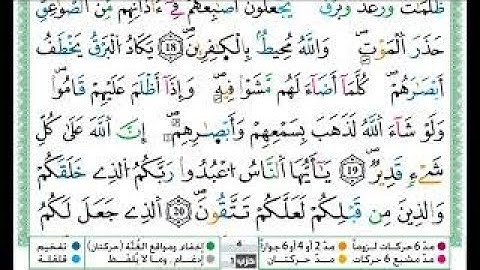 ظُلُمَٰتٌ وَرَعْدٌ وَبَرْقٌ يَجْعَلُونَ أَصَٰبِعَهُمْ فِےٓ ءَاذَانِهِم مِّنَ اَ۬لصَّوَٰعِقِ
حَذَرَ اَ۬لْمَوْتِۖ وَاللَّهُ مُحِيطُۢ بِالْكٰ۪فِرِينَۖ 18 يَكَادُ اُ۬لْبَرْقُ يَخْطَفُ
أَبْصَٰرَهُمْۖ كُلَّمَآ أَضَآءَ لَهُم مَّشَوْا۟ فِيهِۖ وَإِذَآ أَظْلَمَ عَلَيْهِمْ قَامُوا۟ۖ
وَلَوْ شَآءَ اَ۬للَّهُ لَذَهَبَ بِسَمْعِهِمْ وَأَبْصٰ۪رِهِمْۖ إِنَّ اَ۬للَّهَ عَلَىٰ كُلِّ
شَےْءٖ قَدِيرٌۖ 19 يَٰٓأَيُّهَا اَ۬لنَّاسُ اُ۟عْبُدُوا۟ رَبَّكُمُ اُ۬لذِے خَلَقَكُمْ
وَالذِينَ مِن قَبْلِكُمْ لَعَلَّكُمْ تَتَّقُونَۖ 20 اَ۬لذِے جَعَلَ لَكُمُ
مدّ 6 حركات لزوماً مدّ 2 أو 4 أو 6 جوازاً 4 إخفاء ومواقع الغُنَّة (حركتان) تفخيم
مدّ مشبع 6 حركات مدّ حركتان حزب 1 إدغام، وما لا يُلفظ قلقلة